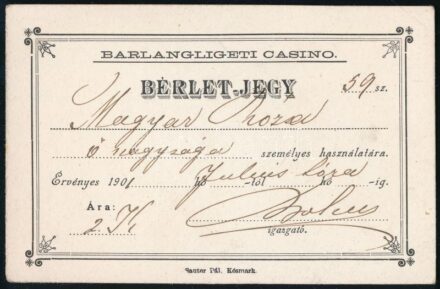 BARLANGLIGETI CASINO.
BÉRLET-JEGY 59 sz.
Magyar Roza
ő nagysága személyes használatára.
Érvényes 1901 hó Julius -tól hó -ig.
Ára:
2 K
igazgató.
Sauter Pál. Késmárk.